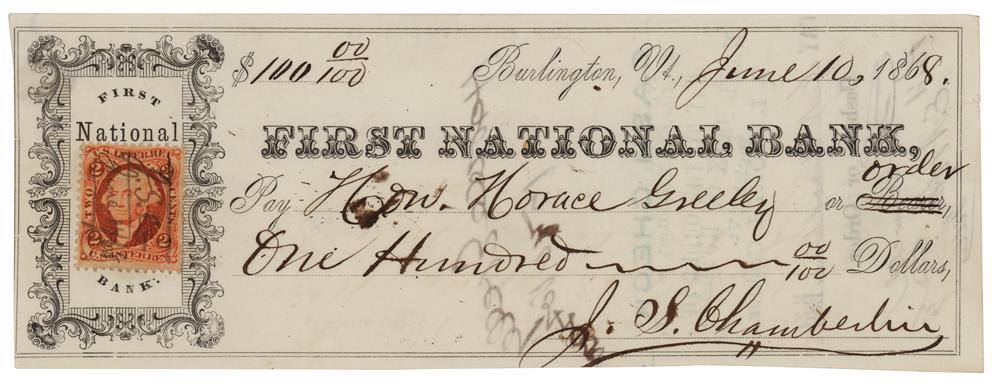 FIRST
National
BANK.
2 U.S. INTER. REV. 2
TWO CENTS
2 U.S. INTER. REV. 2
$ 100 00/100 Burlington, Vt., June 10, 1868.
FIRST NATIONAL BANK,
order
Pay Hon. Horace Greeley or Bearer,
One Hundred 00/100 Dollars,
J. S. Chamberlin